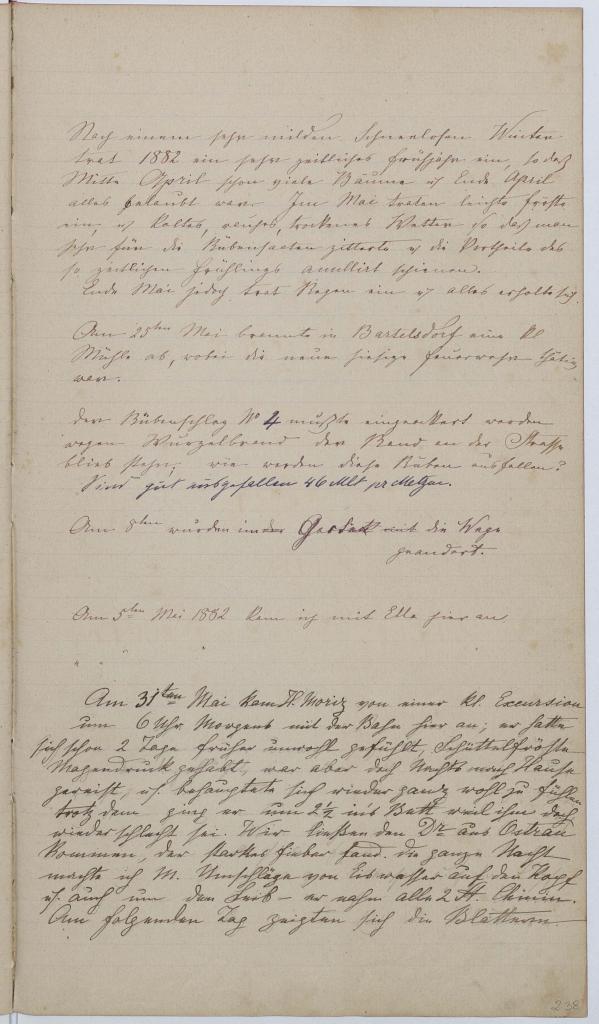 Nach einem sehr milden Schneelosen Winter
trat 1882 ein sehr zeitliches Frühjahr ein, so daß
Mitte April schon viele Bäume u Ende April
alles belaubt war. Im Mai traten leichte Fröste
ein, u kaltes, rauhes, trockenes Wetter so daß man
sehr für die Rübensaaten zitterte u die Vortheile des
so zeitlichen Frühlings anullirt schienen.
Ende Mai jedoch trat Regen ein u alles erholte sich.
Am 25ten Mai brannte in Bartelsdorf eine kl
Mühle ab, wobei die neue hiesige Feuerwehr thätig
war.
Der Rübenschlag No 4 mußte eingeackert werden
wegen Wurzelbrand der Rand an der Strasse
blieb stehn; wie werden diese Rüben ausfallen?
Sind gut ausgefallen 46 Mlt pr Metzen.
Am 8ten wurden die Wege
geändert.
Am 5ten Mai 1882 kam ich mit Ella hier an
Am 31ten Mai kam Moriz von einer kl. Excursion
um 6 Uhr Morgens mit der Bahn hier an; er hatte
sich schon 2 Tage früher unwohl gefühlt, Schüttelfröste
Magendruck gehabt, war aber doch Nachts nach Hause
gereist, u. behauptete sich wieder ganz wohl zu fühlen
trotzdem ging er um 2 1/2 ins Bett weil ihm doch
wieder schlecht sei. Wir ließen den Dr aus Ostrau
kommen, der starkes Fieber fand. die ganze Nacht
machte ich M. Umschläge von Eiswasser auf den Kopf
u. auch um den Leib – er nahm alle 2 St. Chinin.
Am folgenden Tag zeigten sich die Blattern
238